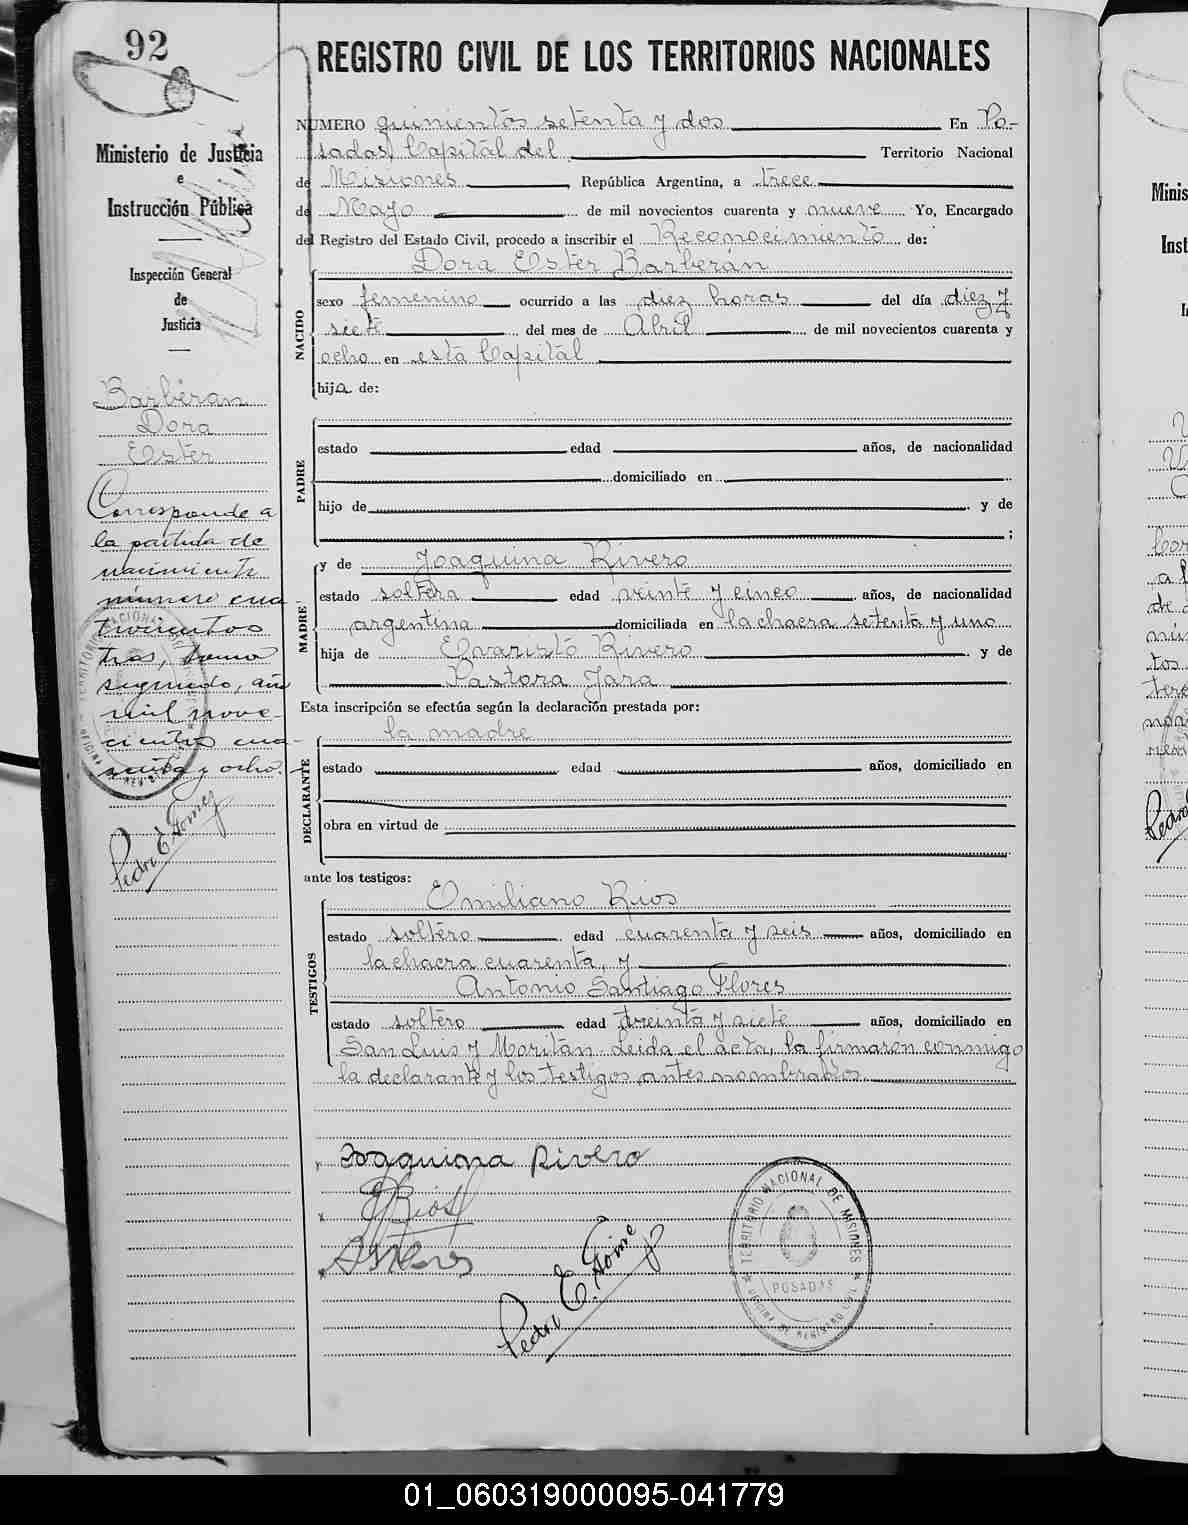 92
REGISTRO CIVIL DE LOS TERRITORIOS NACIONALES
Ministerio de Justicia
e
Instrucción Pública
Inspección General
de
Justicia
Barberán
Dora
Ester
Corresponde a
la partida de
nacimiento
número cua-
trocientos
tres, tomo
segundo, año
mil nove-
cientos cua-
renta y ocho.
Pedro E. Gomez
NUMERO quinientos setenta y dos En Po-
sadas, Capital del Territorio Nacional
de Misiones, República Argentina, a trece
de Mayo de mil novecientos cuarenta y nueve Yo, Encargado
del Registro del Estado Civil, procedo a inscribir el Reconocimiento de:
Dora Ester Barberán
NACIDO
sexo femenino ocurrido a las diez horas del día diez y
siete del mes de Abril de mil novecientos cuarenta y
ocho en esta Capital
hija de:
PADRE
estado edad años, de nacionalidad
domiciliado en
hijo de y de
;
MADRE
y de Joaquina Rivero
estado soltera edad veinte y cinco años, de nacionalidad
argentina domiciliada en la chacra setenta y uno
hija de Evaristo Rivero y de
Pastora Jara
Esta inscripción se efectúa según la declaración prestada por:
la madre
DECLARANTE
estado edad años, domiciliado en
obra en virtud de
ante los testigos:
TESTIGOS
Emiliano Rios
estado soltero edad cuarenta y seis años, domiciliado en
la chacra cuarenta, y
Antonio Santiago Flores
estado soltero edad treinta y siete años, domiciliado en
San Luis y Moritán. Leida el acta, la firmarón conmigo
la declarante y los testigos antes nombrados.
Joaquina Rivero
E Rios
Pedro E. Gomez
TERRITORIO NACIONAL DE MISIONES
POSADAS
OFICINA DE REGISTRO CIVIL
Minis
Inst
01_060319000095-041779